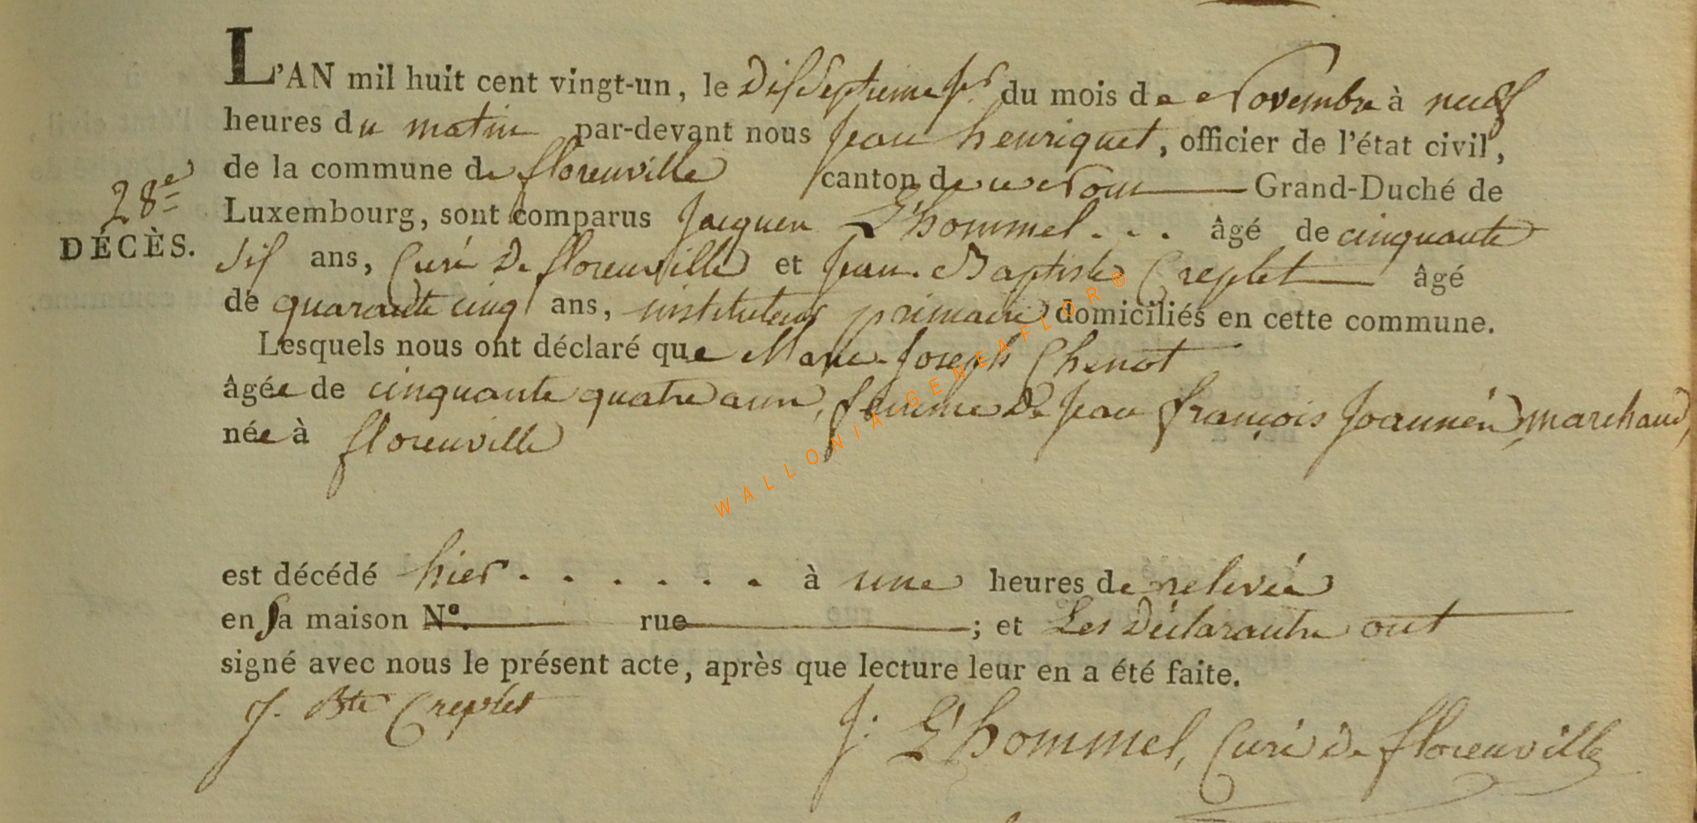 L'AN mil huit cent vingt-un, le Dix Septieme Jr. du mois de Novembre à neuf
heures du matin par-devant nous Jean henriquet, officier de l'état civil,
de la commune de florenville canton de Grand-Duché de
28e
Luxembourg, sont comparus Jacques L'hommel . . . âgé de cinquante
DÉCÈS.
Six ans, Curé De florenville et Jean Baptiste Creplet âgé
de quarante cinq ans, instituteur primaire domiciliés en cette commune.
Lesquels nous ont déclaré que Marie Joseph Chenot
âgée de cinquante quatre ans, femme De Jean françois Joannés, marchand,
née à florenville
WALLONIA GENEAFLORE
est décédé hier . . . . . . à une heures de relevée
en Sa maison N°. rue ; et Les Déclarants ont
signé avec nous le présent acte, après que lecture leur en a été faite.
J. Bte Creplet
J: L'hommel, Curé De florenville